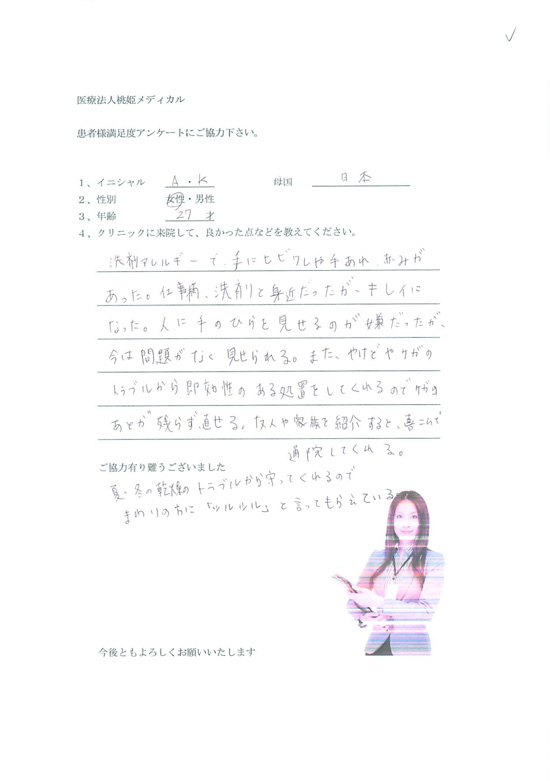 医療法人桃姫メディカル
患者様満足度アンケートにご協力下さい。
1、イニシャル A・K 母国 日本
2、性別 女性・男性
3、年齢 27 才
4、クリニックに来院して、良かった点などを教えてください。
洗剤アレルギーで、手にヒビワレや手あれ、赤みが
あった。仕事柄、洗剤と身近だったが、キレイに
なった。人に手のひらを見せるのが嫌だったが、
今は問題がなく見せられる。また、やけどやケガの
トラブルから即効性のある処置をしてくれるのでケガの
あとが残らず、直せる。友人や家族を紹介すると、喜こんで
通院してくれる。
ご協力有り難うございました
夏・冬の乾燥のトラブルから守ってくれるので
まわりの方に「ツルツル」と言ってもらえている。
今後ともよろしくお願いいたします